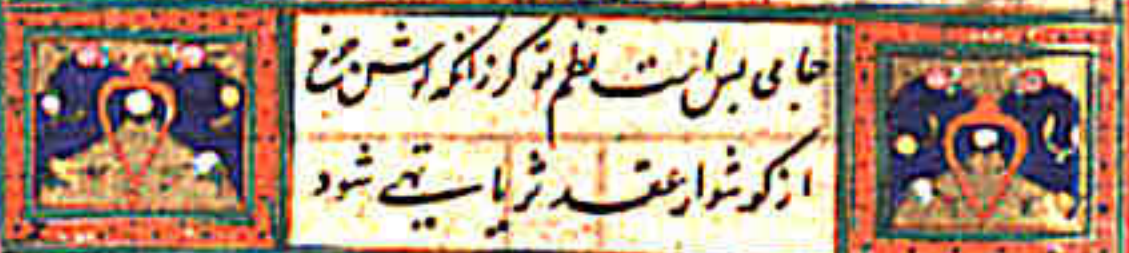 جامی بس است نظم تو کر زانکه کوش چرخ
از کوشوار عقد ثریا تهی شود